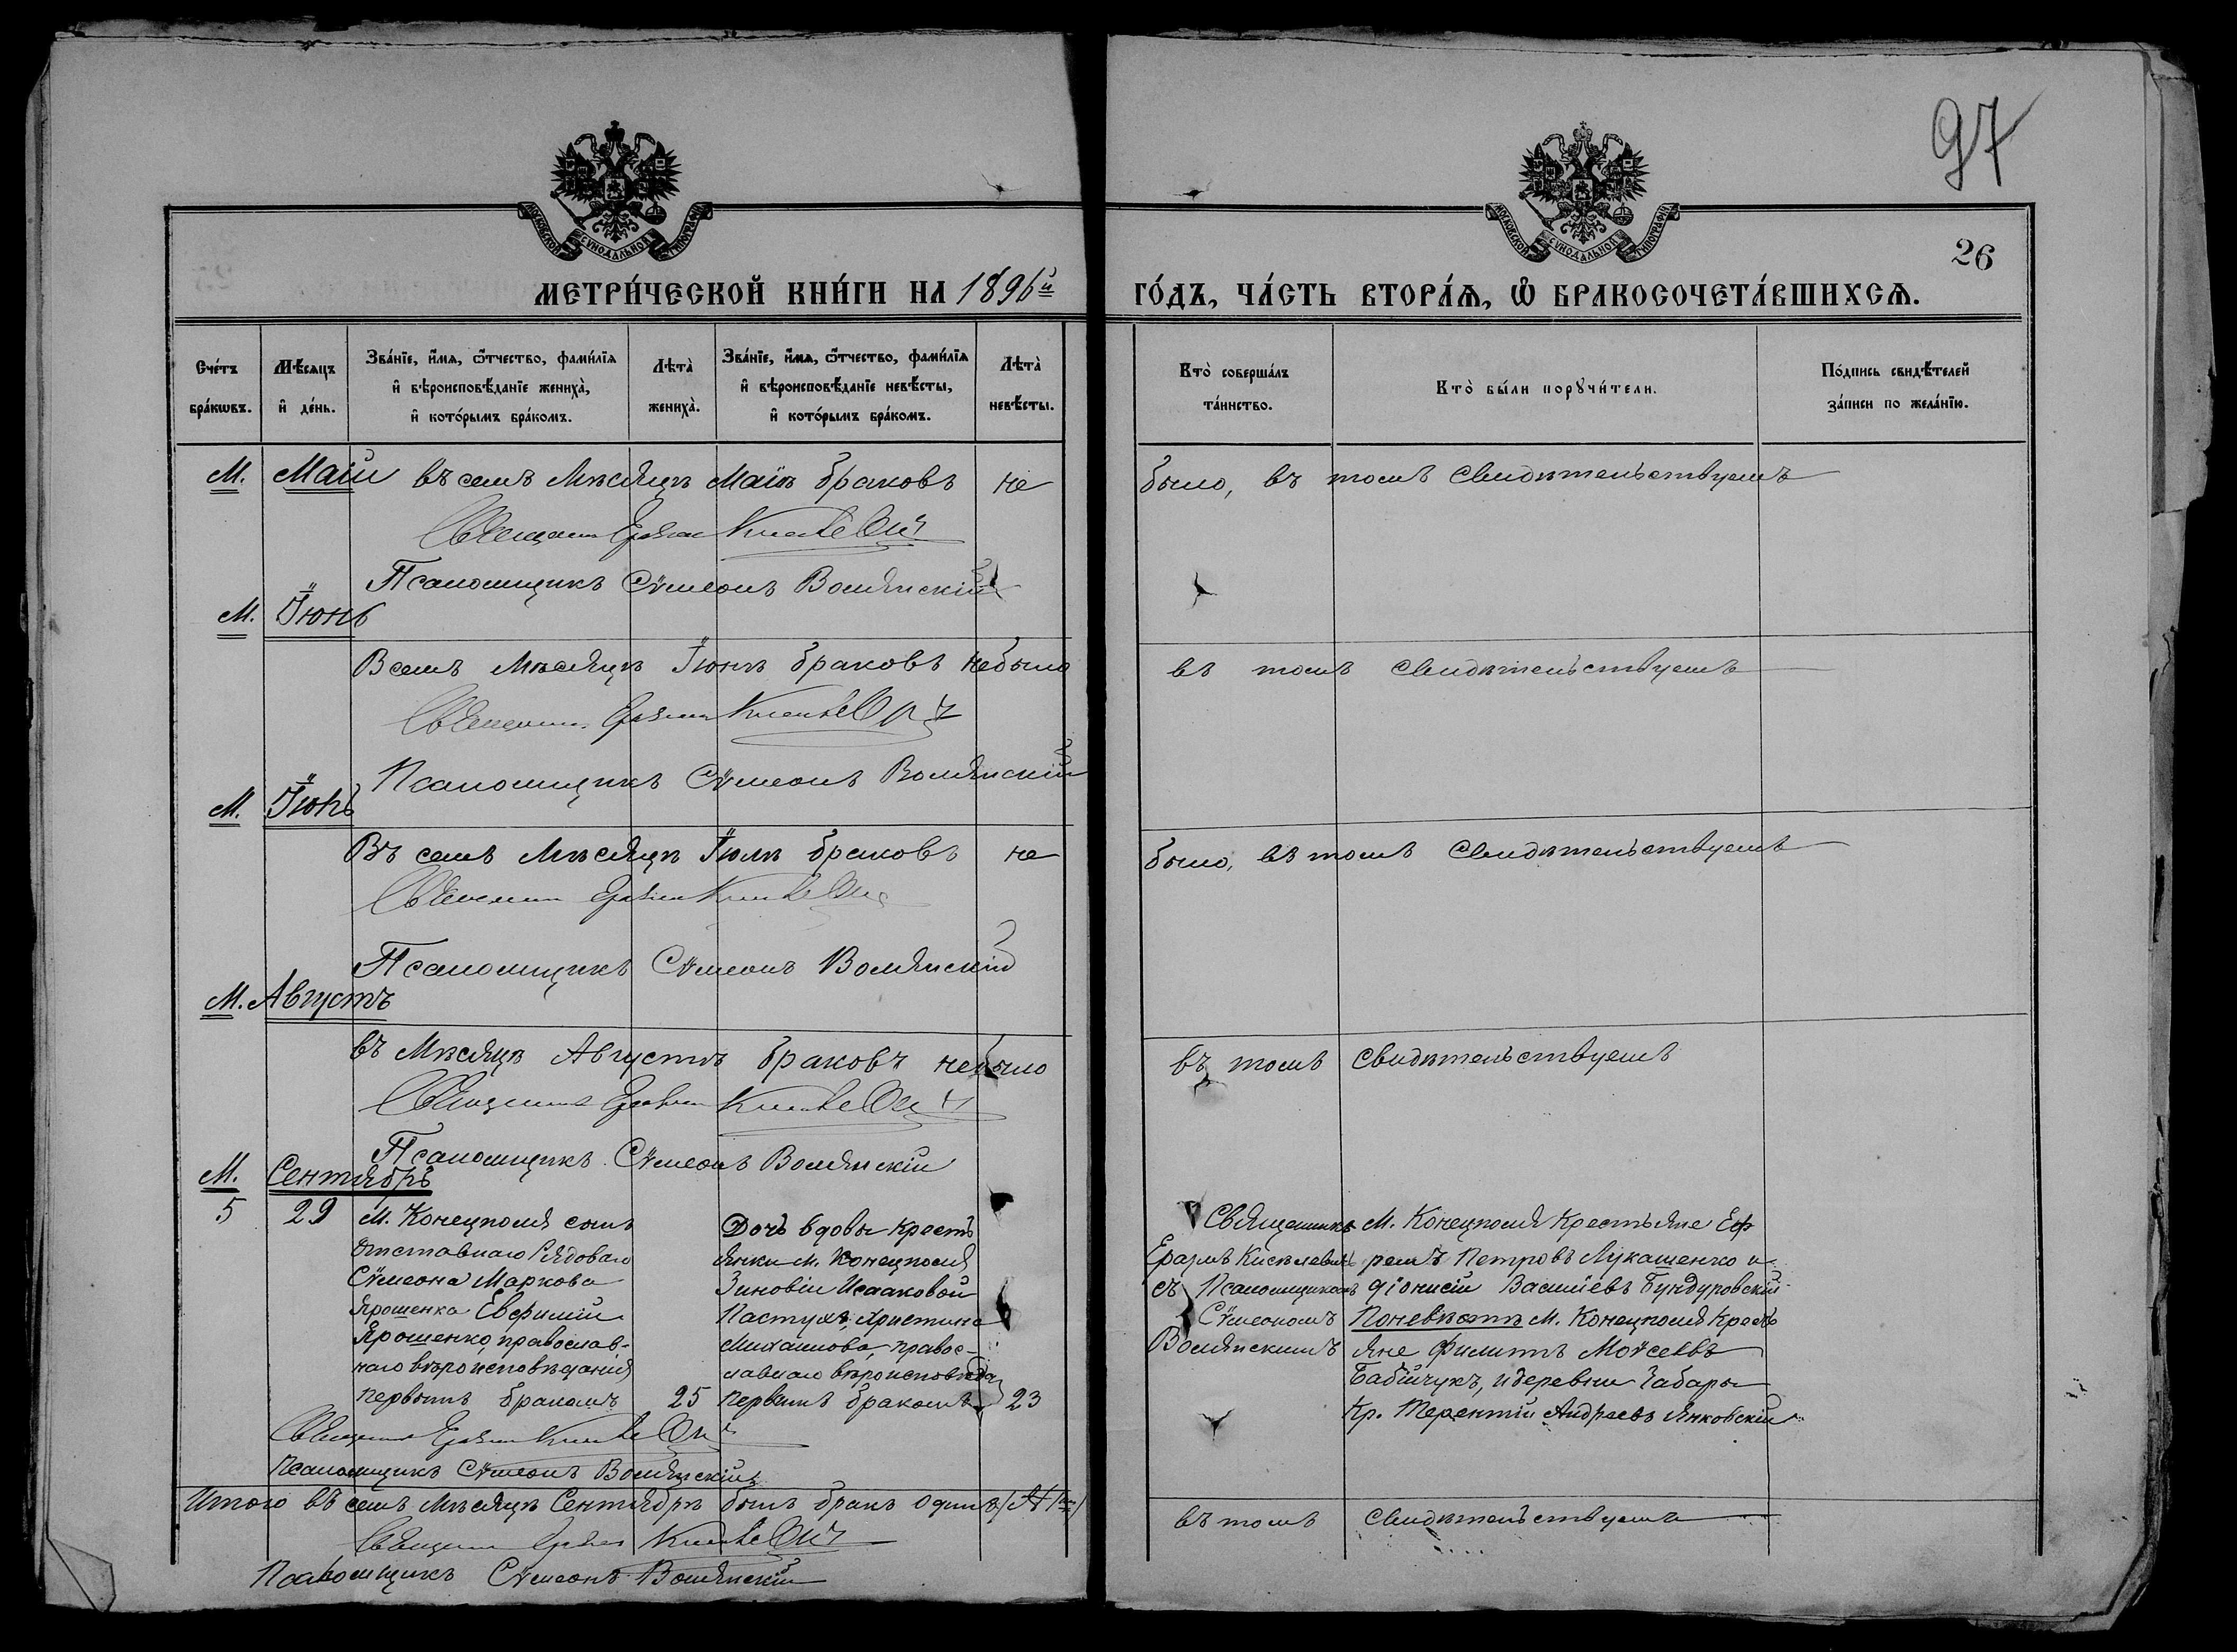 97
МОСКОВСКОЙ СУНОДАЛЬНОЙ ТИПОГРАФІИ
МОСКОВСКОЙ СУНОДАЛЬНОЙ ТИПОГРАФІИ
26
МЕТРИ́ЧЕСКОЙ КНИ́ГИ НА 1896й ГО́ДЪ, ЧА́СТЬ ВТОРА́Я, Ѽ БРАКОСОЧЕТА́ВШИХСЯ.
Сче́тъ бра́кѡвъ.
Мѣ́сяцъ и҆ де́нь.
Зва́нїе, и҆́мя, ѻ҆́тчество, фами́лїя и҆ вѣроисповѣ́данїе жениха̀, и҆ кото́рымъ бра́комъ.
Лѣта̀ жениха̀.
Зва́нїе, и҆́мя, ѻ҆́тчество, фами́лїя и҆ вѣроисповѣ́данїе невѣ́сты, и҆ кото́рымъ бра́комъ.
Лѣта̀ невѣ́сты.
Кто̀ соверша́лъ та́инство.
Кто̀ бы́ли порꙋчи́тели.
По́дпись свидѣ́телей за́писи по жела́нїю.
М. Маій въ семъ Мѣсяцѣ Маіѣ браковъ не было, въ томъ свидѣтельствуемъ
Псаломщикъ Сѵмеонъ Волянскій
М. Іюнь
В семъ Мѣсяцѣ Іюнѣ браковъ небыло въ томъ свидѣтельствуемъ
Псаломщикъ Сѵмеонъ Волянскій
М. Іюль
Въ семъ Мѣсяцѣ Іюлѣ браковъ не было, въ томъ свидѣтельствуемъ
Псаломщикъ Сѵмеонъ Волянскій
М. Августъ
въ Мѣсяцѣ Августѣ браковъ небыло въ томъ свидѣтельствуемъ
Псаломщикъ Сѵмеонъ Волянскій
М. Сентябрь
5 29
М. Конецполя сынъ
отставнаго Рядоваго
Сѵмеона Маркова
Ярошенка Евфимій
Ярошенко, православ-
наго вѣроисповѣданія
первымъ бракомъ 25
Дочь вдовы кресть
янки м. Конецполя
Зиновіи Исааковой
Пастухъ, Христина
Михаилова, правос-
лавнаго вѣроисповѣда
первымъ бракомъ 23
Священникъ
Еразмъ Киселевичъ
съ Псаломщикомъ
Сѵмеономъ
Волянскимъ
М. Конецполя Крестьяне Еф
ремъ Петровъ Лукашенко и
Діонисій Василіевъ Бундуровскій
По невѣстѣ М. Конецполя Кресть
яне Филиппъ Моѵсеевъ
Бабійчукъ, и деревни Чабары
Кр. Терентій Андреевъ Янковскій
Псаломщикъ Сѵмеонъ Волянскій
Итого въ семъ Мѣсяцѣ Сентябрѣ былъ бракъ Одинъ въ томъ свидѣтельствуемъ
Псаломщикъ Сѵмеонъ Волянскій